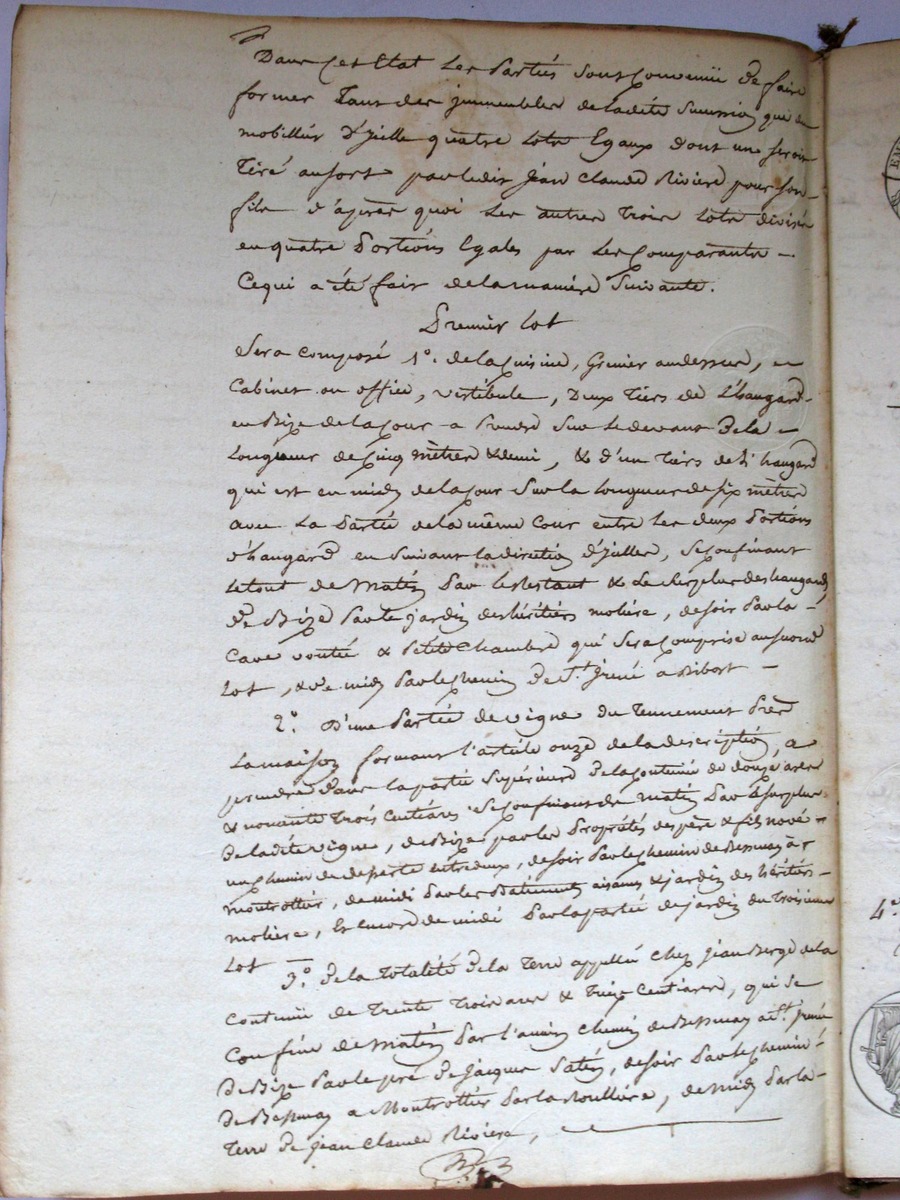 Dans cet Etat les Partiés sont Convenüe de faire
former Tant des jmmeubles de ladite Succession que du
mobillier d'jcelle quatre lots Egaux dont un seroit
Tiré au sort par ledit jean Claude Riviere pour son
fils d'après quoi les autres trois lots divisés
en quatre Portions Egales par les Comparants —
Ce qui a été fait de la maniere suivante.
Premier lot
Sera composé 1°. de la Cuisine, Grenier au dessus, et
Cabinet ou office, vestibule, Deux tiers de l'hangard
en Bize de la Cour a Prendre sur le devant de la
Longueur de Cinq mètres & demi, & d'un tiers de l'hangard
qui est en midy de la Cour sur la longueur de six mètres
avec la Partie de la même Cour entre les deux Portions
d'hangard en suivant la direction d'jcelles, se Confinant
le tout de matin Par le Restant & le surplus des hangards,
de Bize Par le jardin des héritiers molière, de soir Par la —
Cave voutée & Petite Chambre qui sera Comprise au second
Lot, & de midy Par le Chemin de St. jrené a Ribost —
2°. D'une Partie de vigne du Tennement Près
La maison formant l'article onze de la description, a
prendre dans la partie supérieure de la Contenüe de douze ares
& nonente trois Centiares se Confinant de matin Par le surplus
de la dite vigne, de Bize par les Propriétés des père & fils nové
un Chemin de déserte entredeux, de soir Par le Chemin de Bessenay à
montrottier, de midi Par les Batiments aisances & jardin des héritiers
molière, & encore de midi Par la partie de jardin du troisieme
Lot
3°. de la Totalité de la Terre appellée Chez jean Berge de la
Contenüe de Trente Trois ares & Treize Centiares, qui se
Confine de matin Par l'ancien Chemin de Bessenay a St. jrené
de Bize Par le pré de jacques Patin, de soir Par le Chemin
de Bessenay a Montrottier Par la Roulliere, de midy Par la
Terre de jean Claude Riviere,
4°.